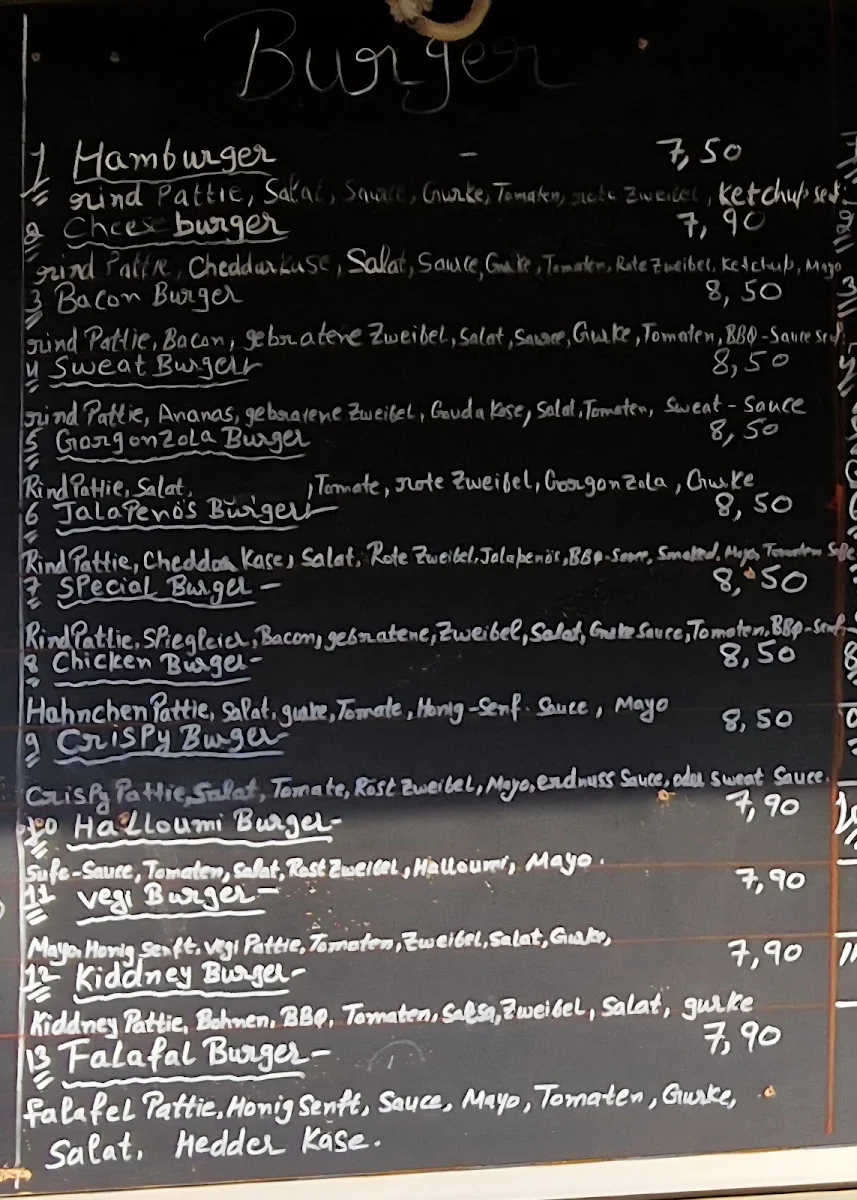 Burger
1 Hamburger - 7,50
rind Pattie, Salat, Sauce, Gurke, Tomaten, rote Zweibel, Ketchup
2 Cheese burger 7,90
rind Pattie, Cheddarkase, Salat, Sauce, Gurke, Tomaten, Rote Zweibel, Ketchup, Mayo
3 Bacon Burger 8,50
rind Pattie, Bacon, gebratene Zweibel, Salat, Sauce, Gurke, Tomaten, BBQ-Sauce
4 Sweat Burger 8,50
rind Pattie, Ananas, gebratene Zweibel, Gouda Kase, Salat, Tomaten, Sweat-Sauce
5 Gorgonzola Burger 8,50
Rind Pattie, Salat, , Tomate, rote Zweibel, Gorgonzola, Gurke
6 Jalapeno's Burger 8,50
Rind Pattie, Cheddar Kase, Salat, Rote Zweibel, Jalapenos, BBQ- Smoked, Mayo, Tomaten
7 Special Burger - 8,50
Rind Pattie, Spiegleier, Bacon, gebratene, Zweibel, Salat, Gurke Sauce, Tomaten, BBQ-Senf
8 Chicken Burger - 8,50
Hahnchen Pattie, Salat, gurke, Tomate, Honig-Senf. Sauce, Mayo
9 Crispy Burger 8,50
Crispy Pattie, Salat, Tomate, Rost Zweibel, Mayo, erdnuss Sauce, oder sweat Sauce.
10 Halloumi Burger - 7,90
Sufe-Sauce, Tomaten, Salat, Rost Zweibel, Halloumi, Mayo.
11 Vegi Burger - 7,90
Mayo, Honig Senft, Vegi Pattie, Tomaten, Zweibel, Salat, Gurke,
12 Kiddney Burger - 7,90
Kiddney Pattie, Bohnen, BBQ, Tomaten, Salsa, Zweibel, Salat, gurke
13 Falafal Burger - 7,90
falafel Pattie, Honig Senft, Sauce, Mayo, Tomaten, Gurke,
Salat, Hedder Käse.